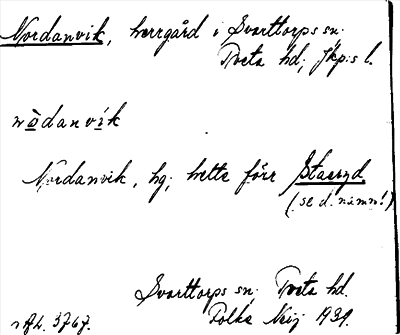 Nordanvik, herrgård i Svarttorps sn.
Tveta hd; Jkp:s l.
nòdanvík
Nordanvik, hg; hette förr Stensryd
(se d. namn!)
Svarttorps sn; Tveta hd.
3767. Folke 1931.